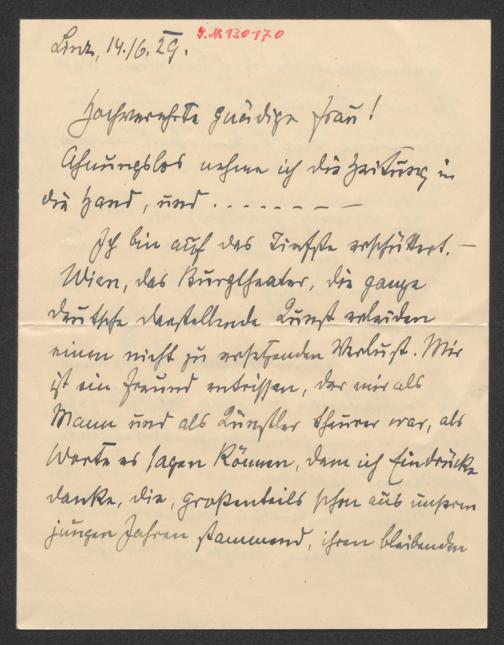 I.N 130170
Linz, 14./6. 29.
Hochverehrte gnädige Frau!
Ahnungslos nehme ich die Zeitung in
die Hand, und . . . . . . . – – –
Ich bin auf das Tiefste erschüttert. –
Wien, das Burgtheater, die ganze
deutsche darstellende Kunst erleiden
einen nicht zu ersetzenden Verlust. Mir
ist ein Freund entrissen, der mir als
Mann und als Künstler theurer war, als
Worte es sagen können, dem ich Eindrücke
danke, die, großenteils schon aus unseren
jungen Jahren stammend, ihren bleibenden